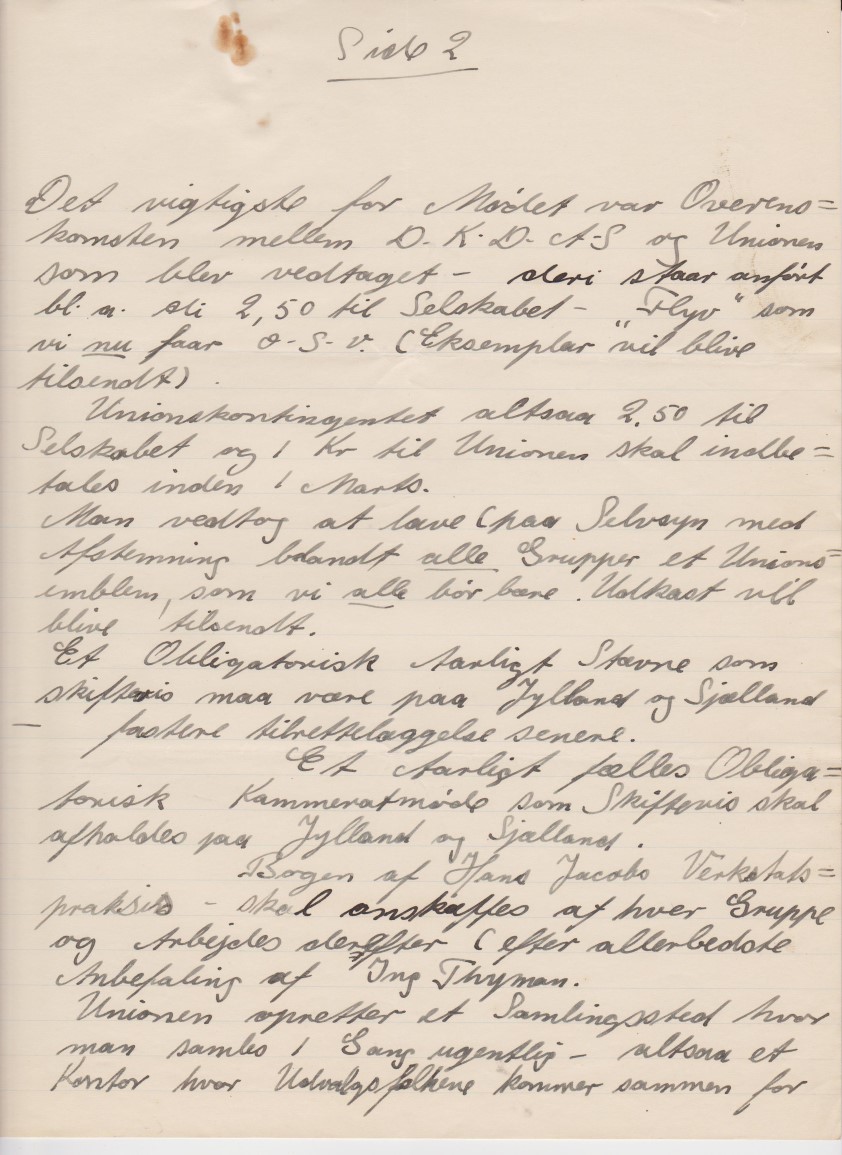 Side 2
Det vigtigste for Mødet var Overens=
komsten mellem D.K.D.A-S og Unionen
som blev vedtaget - deri staar anført
bl.a. di 2,50 til Selskabet - "Flyv" som
vi nu faar o-s-v. (Eksemplar vil blive
tilsendt)
Unionskontingentet altsaa 2.50 til
Selskabet og 1 Kr til Unionen skal indbe=
tales inden 1 Marts.
Man vedtog at lave (paa Selvsyn med
Afstemning blandt alle Grupper et Unions=
emblem, som vi alle bør bære. Udkast vil
blive tilsendt.
Et Obligatorisk Aarligt Stævne som
skiftevis maa være paa Jylland og Sjælland
- fastere tilrettelæggelse senere.
Et Aarligt fælles Obliga=
torisk Kammeratmøde som Skiftevis skal
afholdes paa Jylland og Sjælland.
Bogen af Hans Jacobs Verkstats=
praksis - skal anskaffes af hver Gruppe
og Arbejdes derefter (efter allerbedste
Anbefaling af Ing Thyman.
Unionen opretter et Samlingssted hvor
man samles 1 Gang ugentlig - altsaa et
Kontor hvor Udvalgsfolkene kommer sammen for